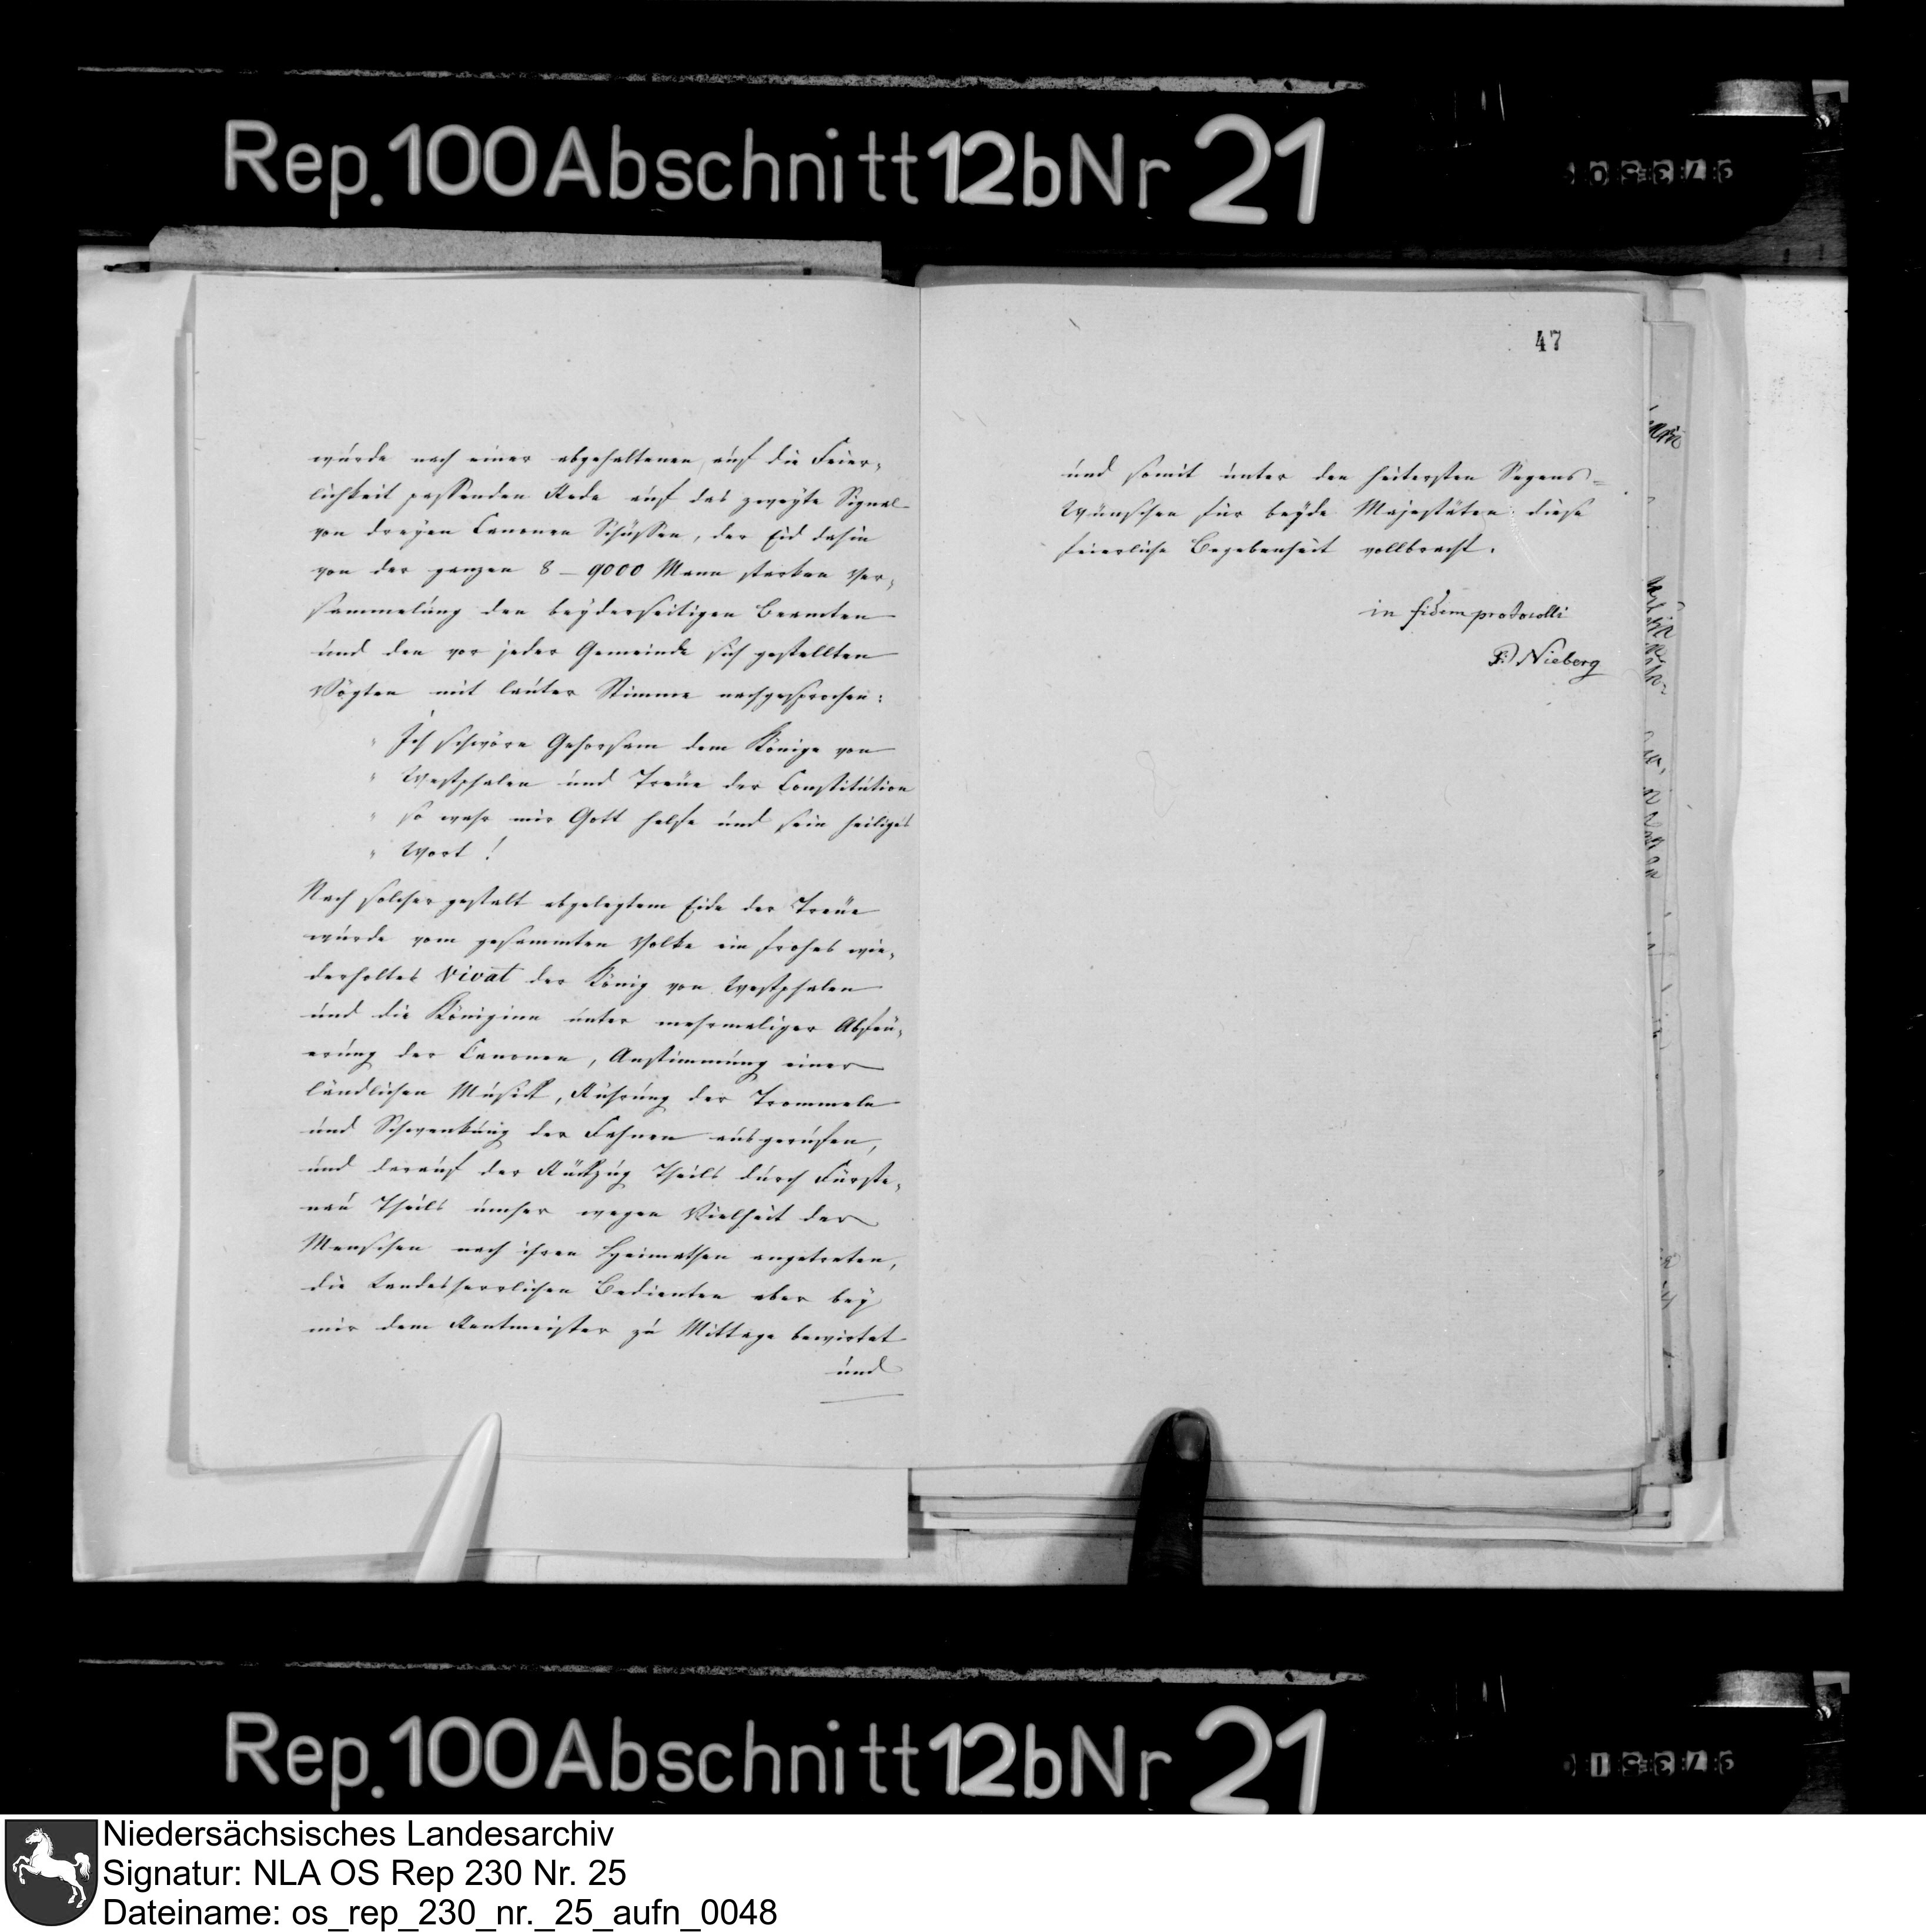 Rep. 100 Abschnitt 12b Nr 21
wurde nach einer abgehaltenen auf die Feier-
lichkeit passenden Rede auf das zweyte Signal
von dreyen Canonen Schüssen, der Eid dahin
von der ganzen 8 – 9000 Mann starken Ver-
sammelung den beyderseitigen Beamten
und den vor jeder Gemeinde sich gestellten
Vögten mit lauter Stimme nachgesprochen:
" Ich schwöre Gehorsam dem Könige von
" Westphalen und Treue der Constitution
" so wahr mir Gott helfe und sein heiliges
" Wort !
Nach solcher gestalt abgelegtem Eide der Treue
wurde vom gesammten Volke ein frohes wie-
derholtes Vivat der König von Westphalen
und die Königinn unter mehrmaliger Abfeu-
erung der Canonen, Anstimmung einer
ländlichen Musick, Rührung der Trommeln
und Schwenkung der Fahnen ausgerufen,
und darauf der Rückzug Theils durch Fürste-
nau Theils umher wegen Vielheit der
Menschen nach ihren Heimathen angetreten,
die Landesherrlichen Bedienten aber bey
mir dem Rentmeister zu Mittage bewirtet
und
47
und somit unter den heitersten Segens-
Wünschen für beyde Majestäten diese
feierliche Begebenheit vollbracht.
in fidem protocolli
Nieberg
Rep. 100 Abschnitt 12b Nr 21
Niedersächsisches Landesarchiv
Signatur: NLA OS Rep 230 Nr. 25
Dateiname: os_rep_230_nr._25_aufn_0048